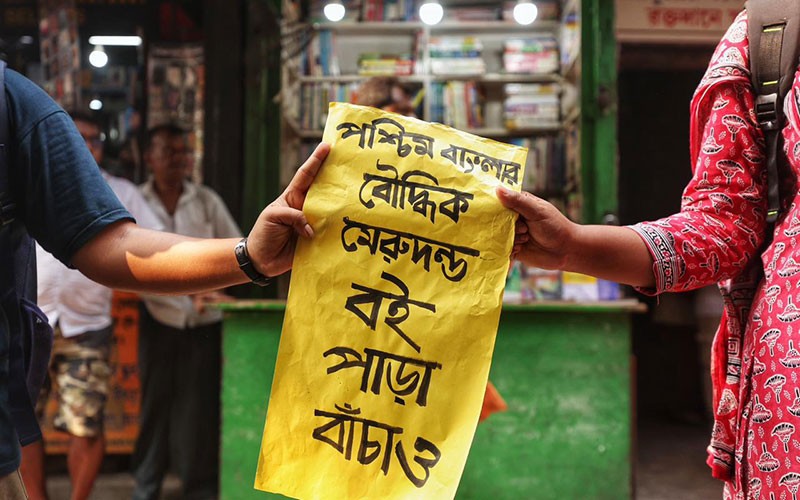 পশ্চিম বাংলার
বৌদ্ধিক
মেরুদন্ড
বই
পাড়া
বাঁচাও